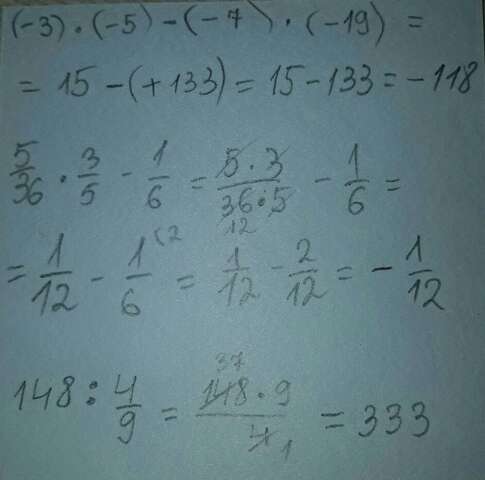 (-3)·(-5)-(-7)·(-19) =
= 15-(+133) = 15-133 = -118
5/36 · 3/5 - 1/6 = 5·3/36·5 12 - 1/6 =
= 1/12 - 1/6 (2 = 1/12 - 2/12 = - 1/12
148 : 4/9 = 37 148·9/4 1 = 333